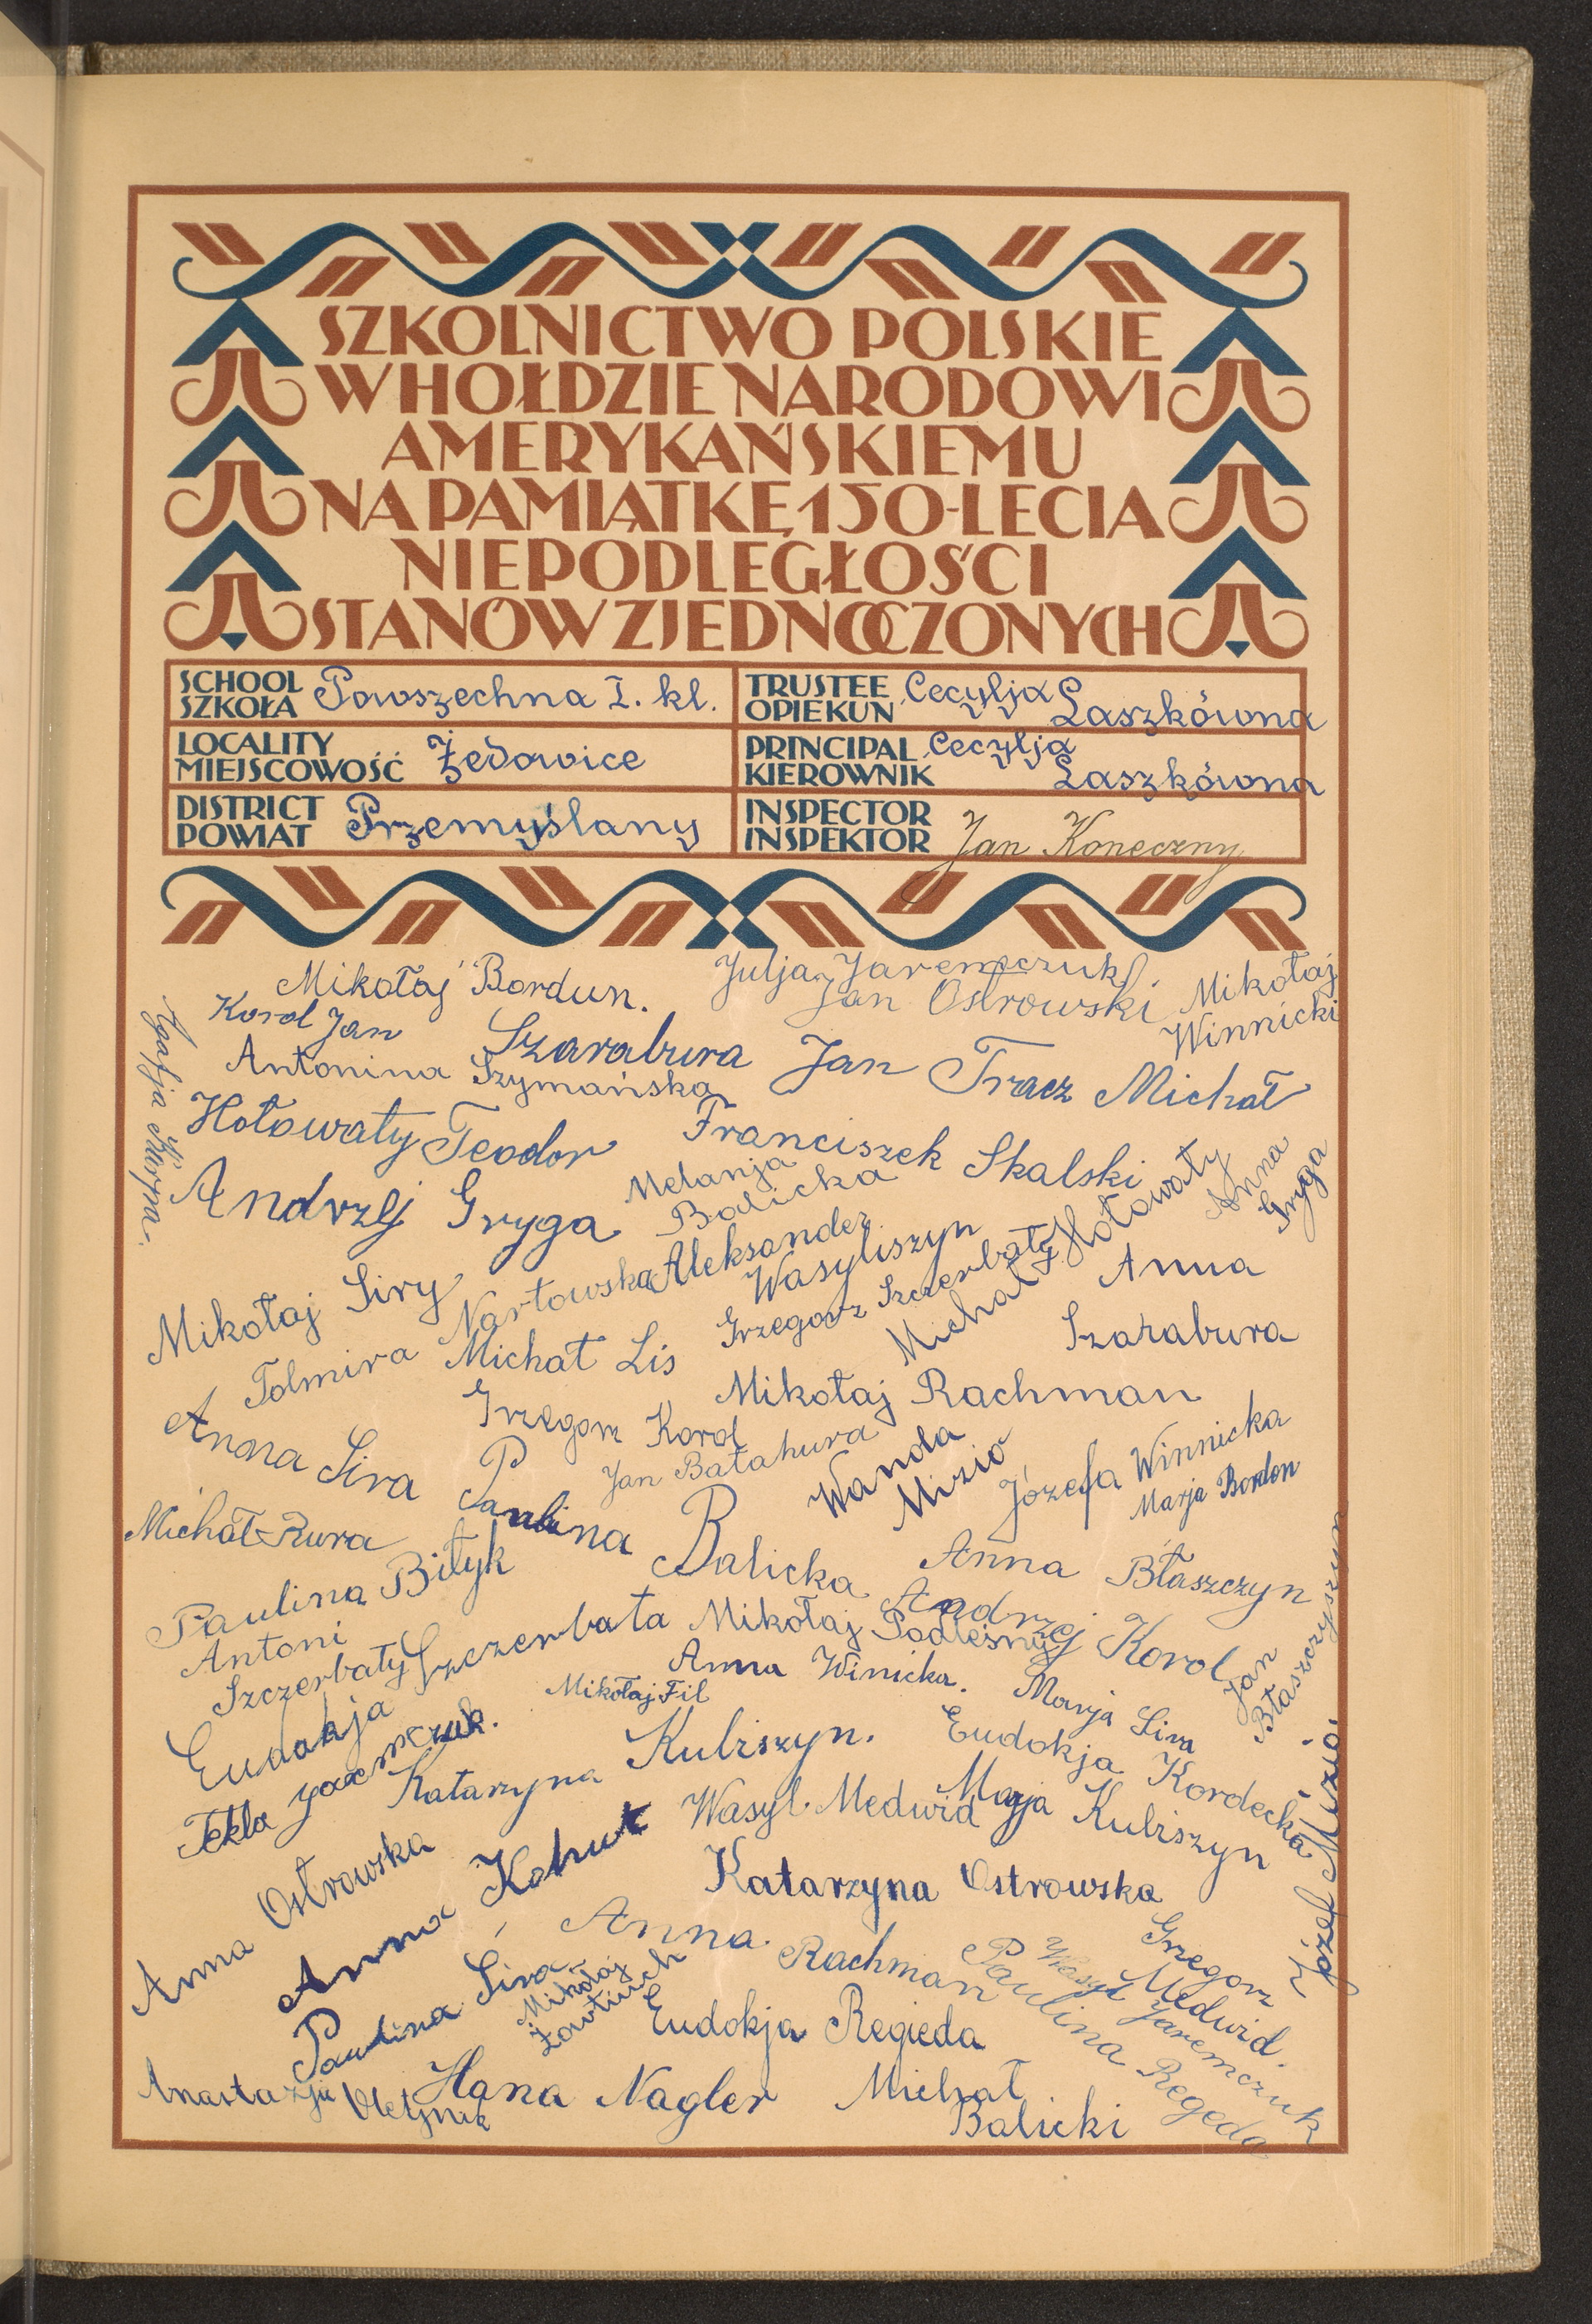 SZKOLNICTWO POLSKIE
W HOŁDZIE NARODOWI
AMERYKAŃSKIEMU
NA PAMIĄTKĘ 150-LECIA
NIEPODLEGŁOŚCI
STANÓW ZJEDNOCZONYCH
SCHOOL
SZKOŁA Powszechna I. kl.
TRUSTEE
OPIEKUN Cecylja Laszkówna
LOCALITY
MIEJSCOWOŚĆ Żedowice
PRINCIPAL
KIEROWNIK Cecylja Laszkówna
DISTRICT
POWIAT Przemyślany
INSPECTOR
INSPEKTOR Jan Koneczny
Mikołaj Bordun.
Julja Jaremczuk.
Jan Ostrowski
Mikołaj
Winnicki
Korol Jan
Szarabura Jan
Tracz Michał
Antonina Szymańska
Hołowaty Teodor
Franciszek Skalski
Andrzej Gryga
Melanja
Balicka
Michał Hołowaty
Anna
Gryga
Aleksander
Wasyliszyn
Grzegorz Szczerbaty
Mikołaj Siry
Nartowska
Anna
Szarabura
Michał Lis
Mikołaj Rachman
Grzegorz Korol
Jan Batahura
Anna Sira
Wanda
Mizio
Józefa Winnicka
Marja Bordon
Paulina Balicka
Michał Rura
Paulina Bityk
Anna Błaszczyn
Andrzej Korol
Antoni
Szczerbaty
Eudokja Szczerbata
Mikołaj Podleśny
Jan
Błaszczyszyn
Anna Winicka.
Mikołaj Fil
Marja Sira
Tekla
Katarzyna Kubiszyn.
Eudokja Kordecka
Wasyl Medwid
Marja Kubiszyn
Józef Mizio
Anna Ostrowska
Anna Kohut
Katarzyna Ostrowska
Anna Rachman
Grzegorz
Medwid.
Paulina Sira
Mikołaj
Wasyl Jaremczuk
Paulina Regeda
Eudokja Regieda
Anastazja
Hana Nagler
Michał
Balicki